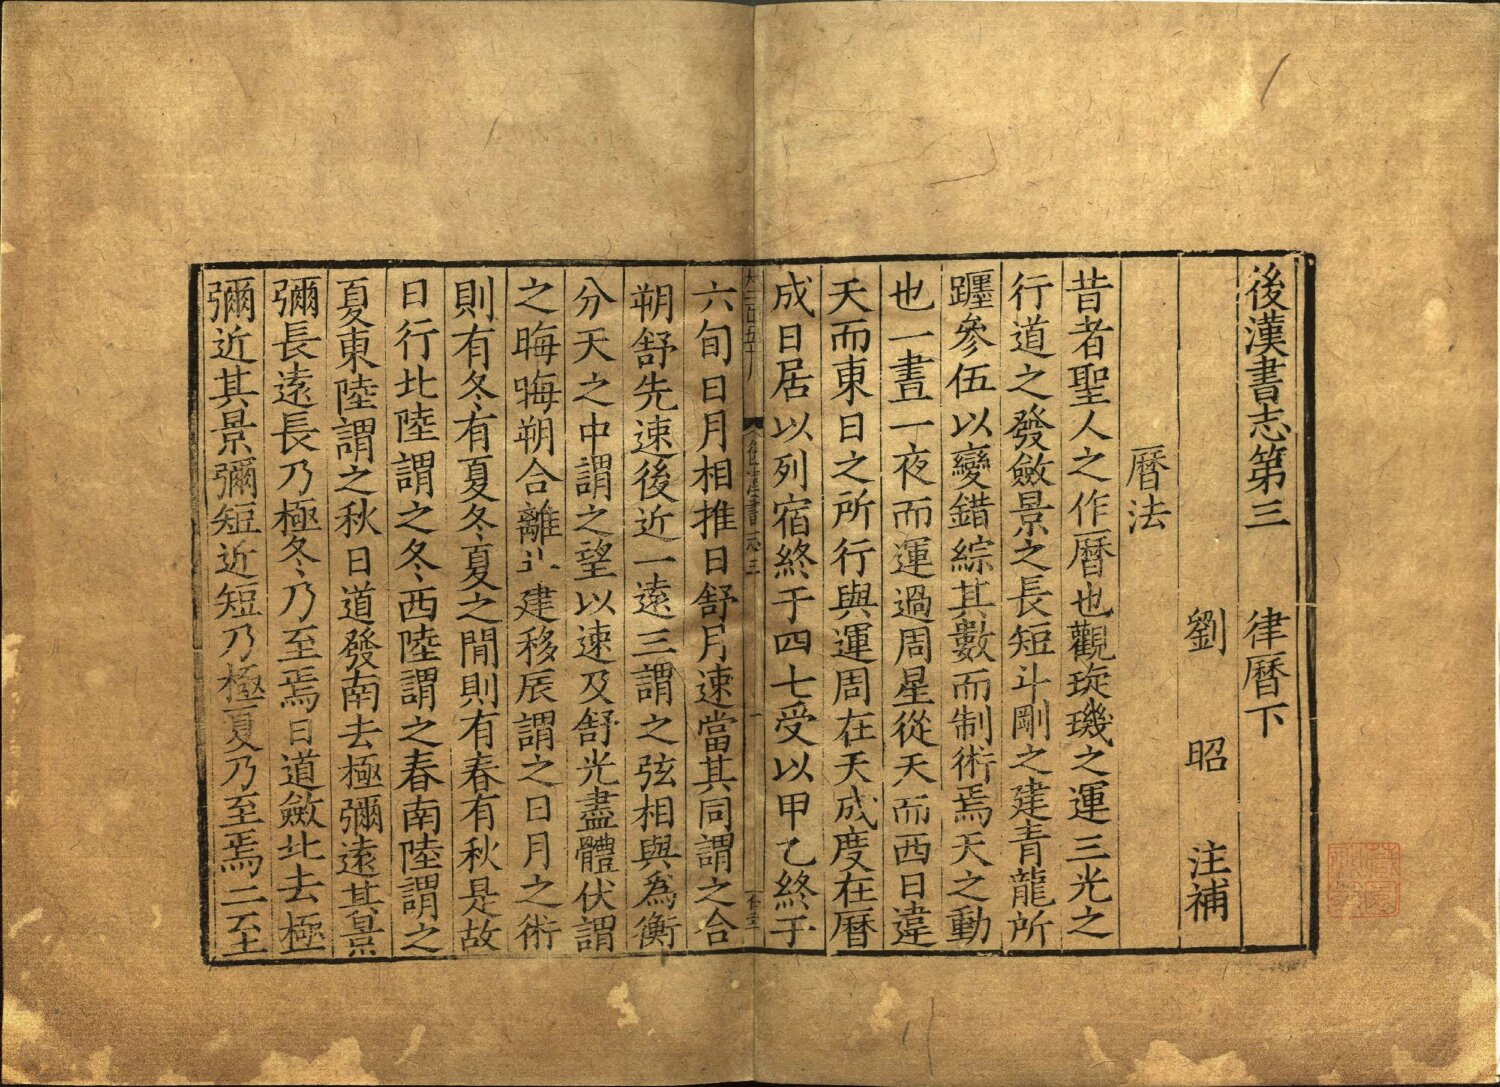 後漢書志第三　律曆下
劉　昭　注補
曆法
昔者聖人之作曆也觀琁璣之運三光之
行道之發斂景之長短斗剛之建青龍所
躔參伍以變錯綜其數而制術焉天之動
也一晝一夜而運過周星從天而西日違
天而東日之所行與運周在天成度在曆
成日居以列宿終于四七受以甲乙終于
後漢書志三
一
六旬日月相推日舒月速當其同謂之合
朔舒先速後近一遠三謂之弦相與為衡
分天之中謂之望以速及舒光盡體伏謂
之晦晦朔合離斗建移辰謂之日月之術
則有冬有夏冬夏之間則有春有秋是故
日行北陸謂之冬西陸謂之春南陸謂之
夏東陸謂之秋日道發南去極彌遠其景
彌長遠長乃極冬乃至焉日道斂北去極
彌近其景彌短近短乃極夏乃至焉二至